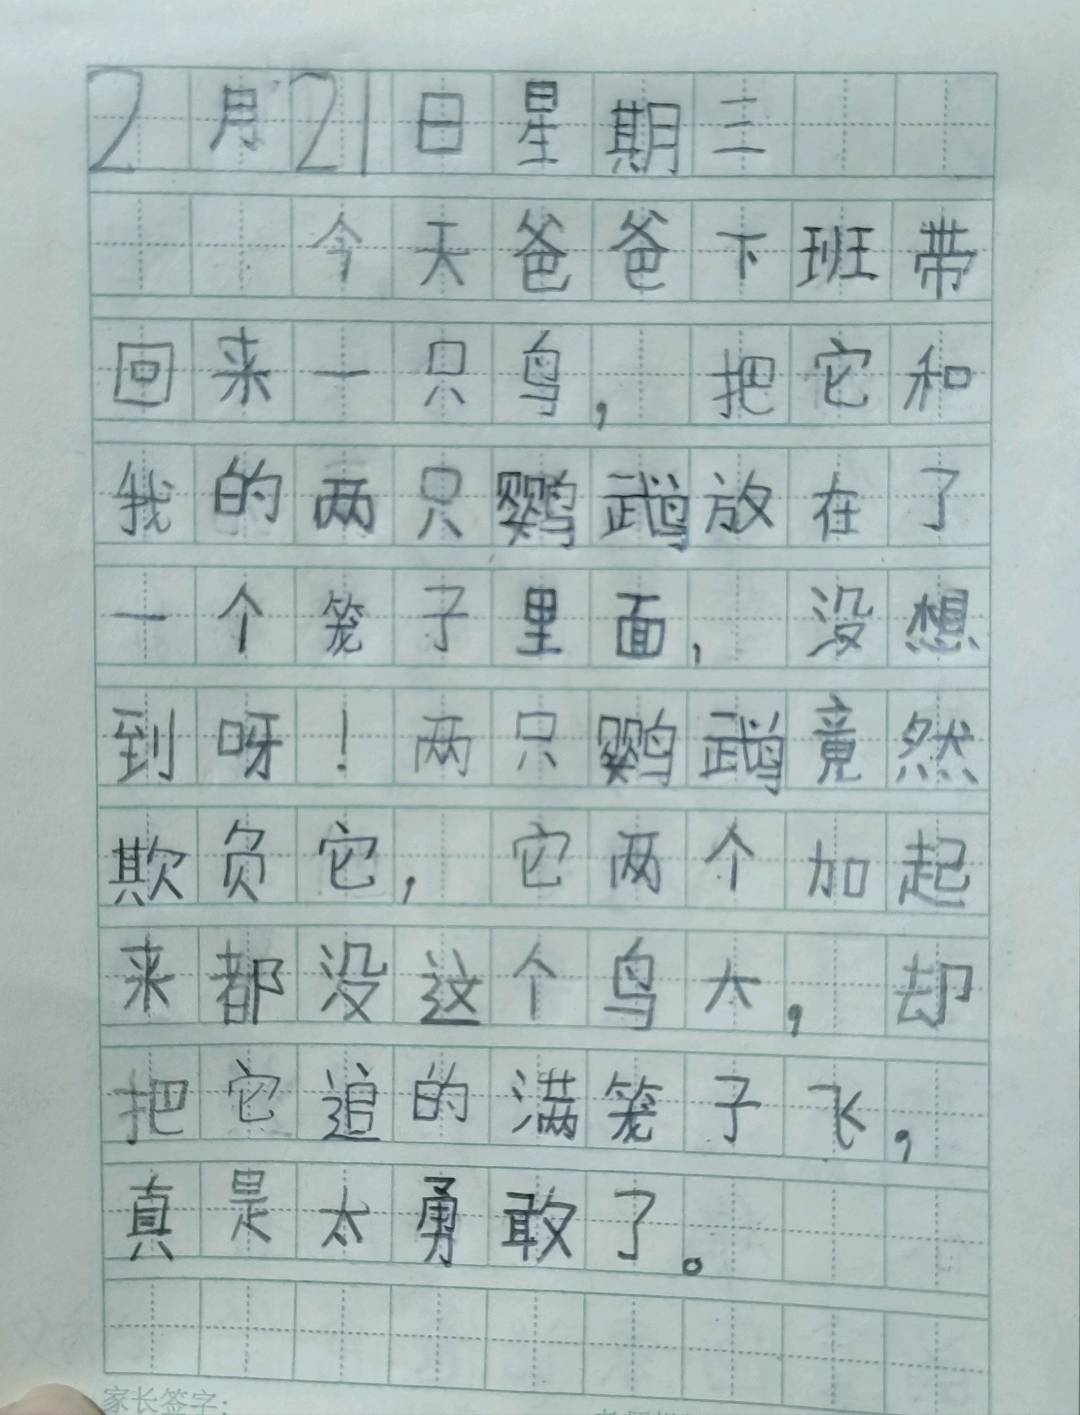 2月21日星期三
今天爸爸下班带
回来一只鸟，把它和
我的两只鹦鹉放在了
一个笼子里面，没想
到呀！两只鹦鹉竟然
欺负它，它两个加起
来都没这个鸟大，却
把它追的满笼子飞，
真是太勇敢了。
家长签字：